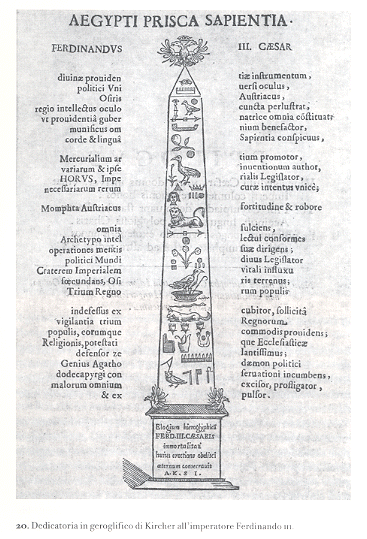 ÆGYPTI PRISCA SAPIENTIA·
FERDINANDVS III. CÆSAR
diuinæ prouiden tiæ instrumentum,
politici Vni uersi oculus,
Osiris Austriacus,
regio intellectus oculo cuncta perlustrat,
vt prouidentiâ guber natrice omnia cõstituat
munificus om nium benefactor,
corde & linguâ Sapientia conspicuus,
Mercurialium ar tium promotor,
variarum & ipse inuentionum author,
HORVS, Impe rialis Legislator,
necessariarum rerum curæ intentus vnicè;
Momphta Austriacus fortitudine & robore
omnia fulciens,
Archetypo intel lectui conformes
operationes mentis suæ dirigens;
politici Mundi diuus Legislator
Craterem Imperialem vitali influxu
fœcundans, Osi ris terrenus;
Trium Regno rum populis
indefessus ex cubitor, sollicitâ
vigilantia trium Regnorum
populis, eorumque commodis prouidens;
Religionis, potestati que Ecclesiasticæ
defensor ze lantissimus;
Genius Agatho dæmon politici
dodecapyrgi con seruationi incumbens,
malorum omnium excisor, profligator,
& ex pulsor.
Elogium hieroglyphicũ
FERD.III.CÆSARIS
immortalitati
huius erectione obelisci
æternum consecrauit
A. K. S I.
20. Dedicatoria in geroglifico di Kircher all'imperatore Ferdinando III.